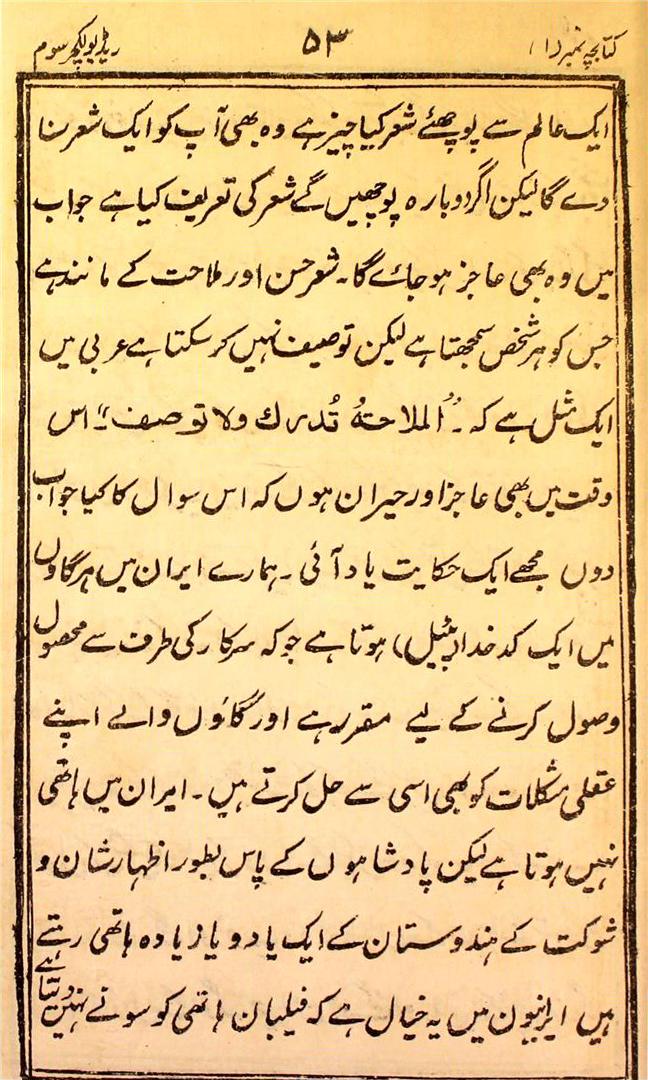 کتابچہ نمبر (۱) ۵۳ ریڈیو لکچر سوم
ایک عالم سے پوچھئے شعر کیا چیز ہے وہ بھی آپ کو ایک شعر سنا
دے گا لیکن اگر دوبارہ پوچھیں گے شعر کی تعریف کیا ہے جواب
میں وہ بھی عاجز ہو جائے گا۔ شعر حسن اور ملاحت کے مانند ہے
جس کو ہر شخص سمجھتا ہے لیکن توصیف نہیں کر سکتا ہے عربی میں
ایک مثل ہے کہ۔ "اُلملاحتهُ تُدرك ولا توصف"۔ اس
وقت میں بھی عاجز اور حیران ہوں کہ اس سوال کا کیا جواب
دوں مجھے ایک حکایت یاد آئی۔ ہمارے ایران میں ہر گاوں
میں ایک کدخدا (پٹیل) ہوتا ہے جو کہ سرکار کی طرف سے محصول
وصول کرنے کے لیے مقرر ہے اور گاؤں والے اپنے
عقلی مشکلات کو بھی اسی سے حل کرتے ہیں۔ ایران میں ہاتھی
نہیں ہوتا ہے لیکن پادشاہوں کے پاس بطور اظہار شان و
شوکت کے ہندوستان کے ایک یا دو یا زیادہ ہاتھی رہتے
ہیں ایرانیون میں یہ خیال ہے کہ فیلبان ہاتھی کو سونے نہیں دیتا ہے